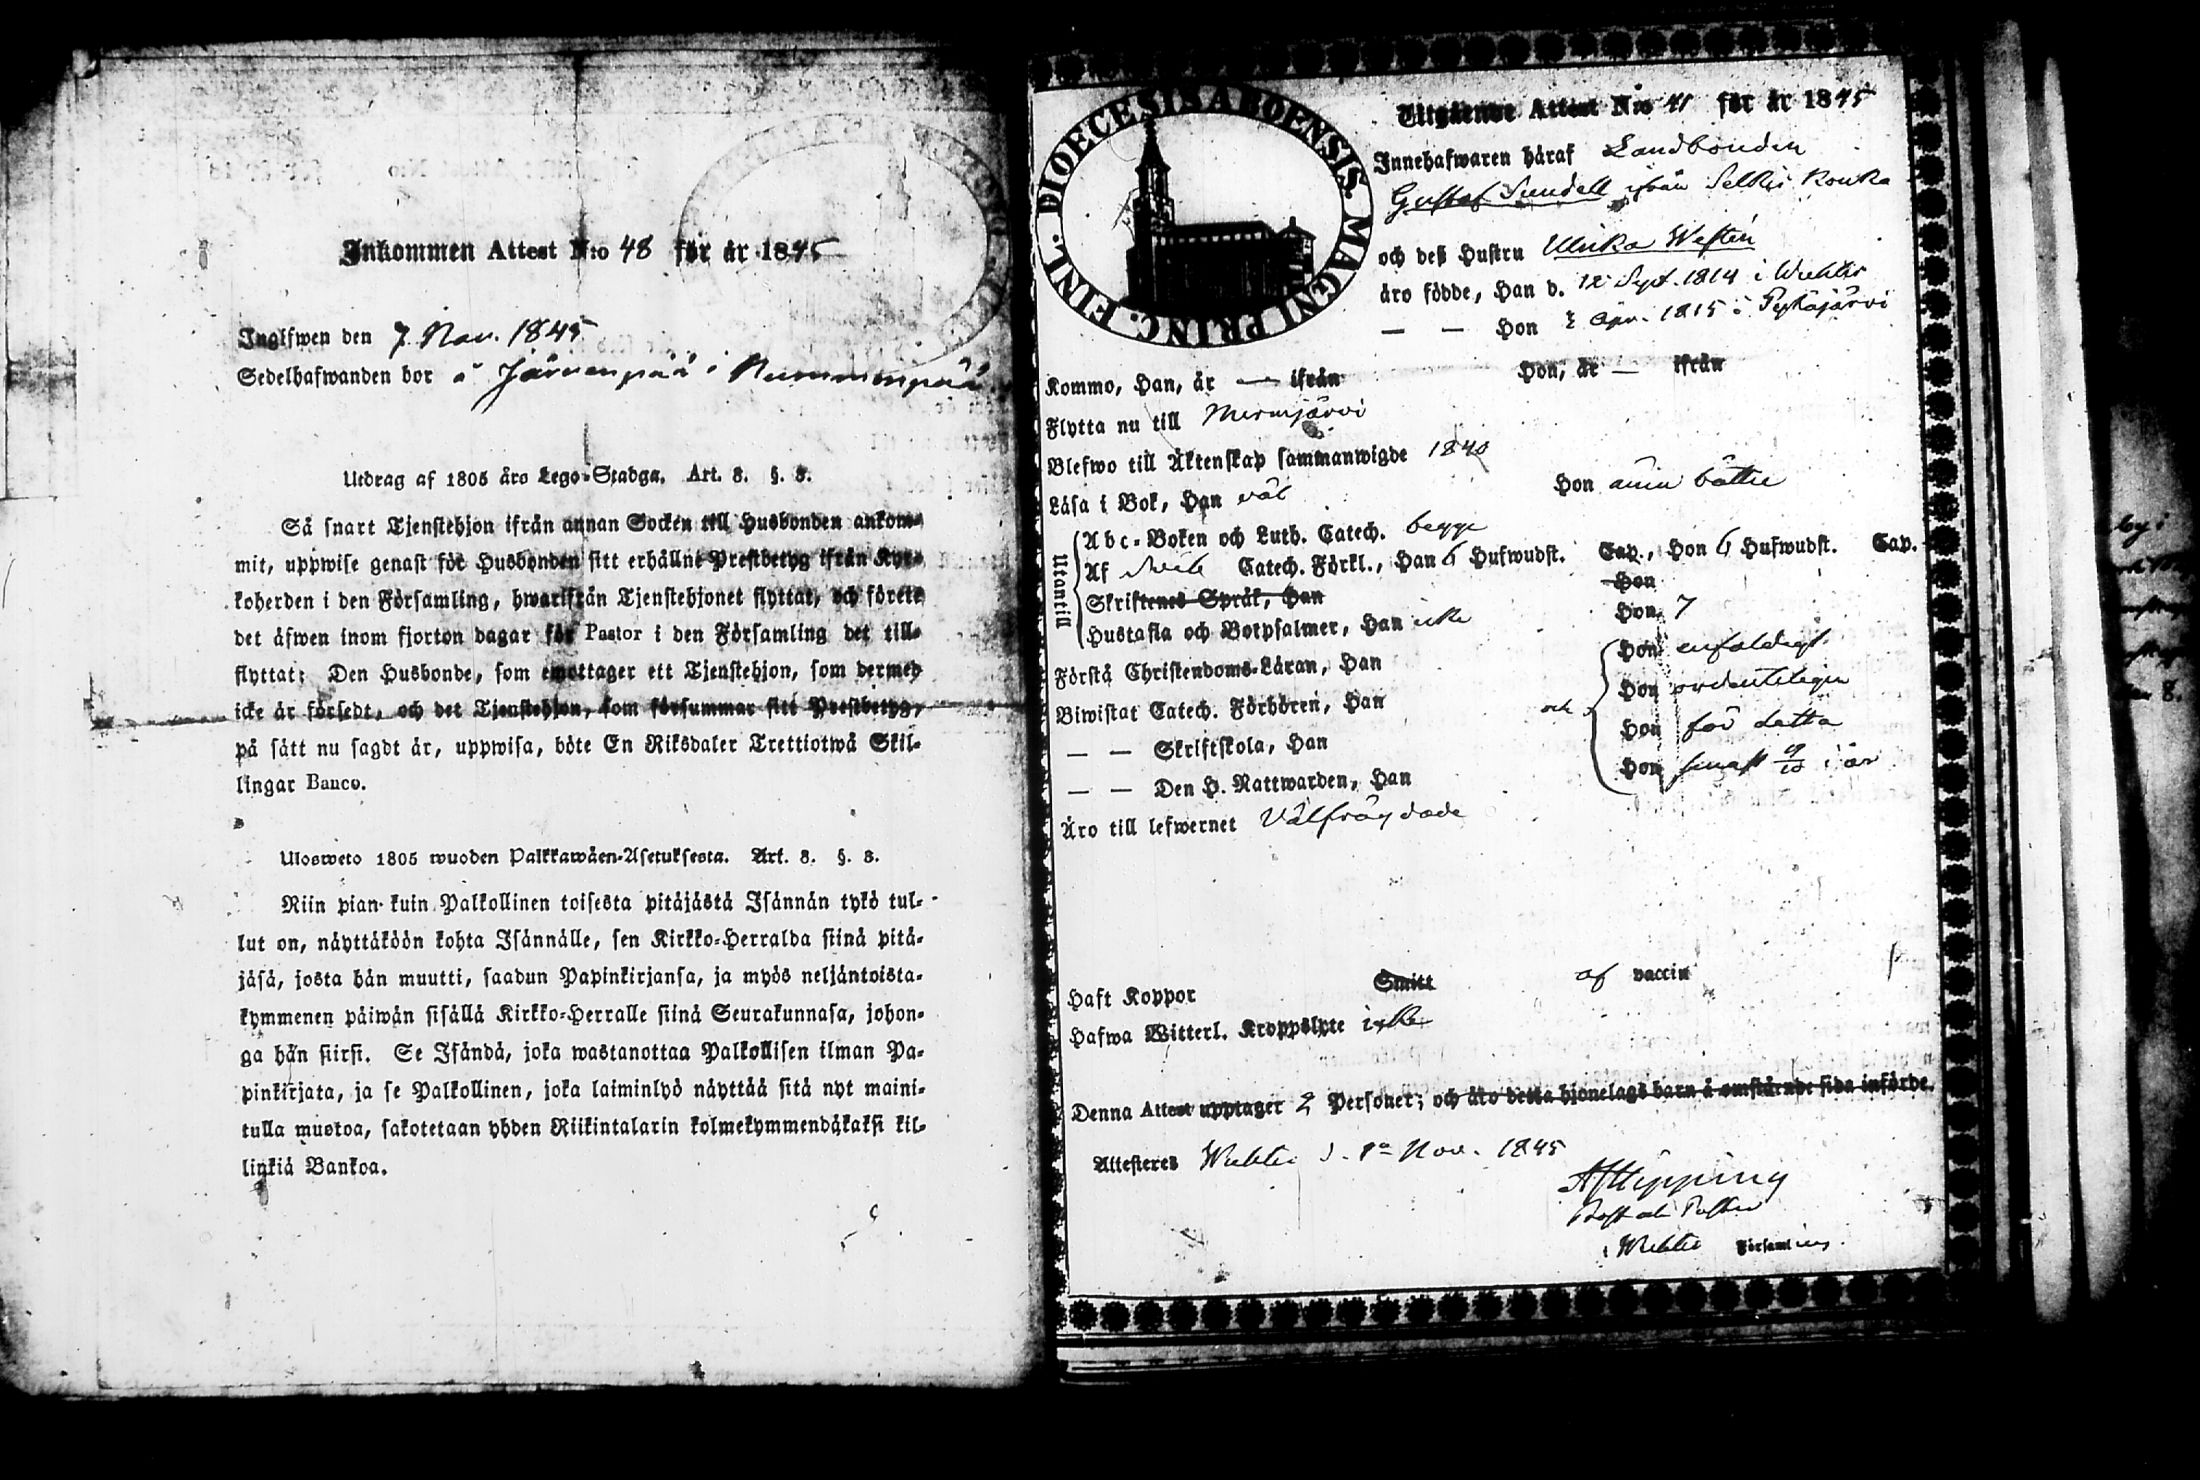 Inkommen Attest N:o 48 för år 1845
Ingifwen den 7 Nov. 1845
Sedelhafwanden bor å Järvenpää i Nummenpää
Utdrag af 1805 års Lego-Stadga. Art. 3. §. 3.
Så snart Tjenstehjon ifrån annan Socken till Husbonden ankom-
mit, uppwise genast för Husbonden sitt erhållne Prestbetyg ifrån Kyr-
koherden i den Församling, hwarifrån Tjenstehjonet flyttat, och förete
det äfwen inom fjorton dagar för Pastor i den Församling det till-
flyttat; Den Husbonde, som emottager ett Tjenstehjon, som dermed
icke är försedt, och det Tjenstehjon, som försummar sitt Prestbetyg,
på sätt nu sagdt är, uppwisa, böte En Riksdaler Trettiotwå Skil-
lingar Banco.
Ulosweto 1805 wuoden Palkkawäen-Asetuksesta. Art. 3. §. 3.
Niin pian kuin Palkollinen toisesta pitäjästä Isännän tykö tul-
lut on, näyttäköön kohta Isännälle, sen Kirkko-Herralda siinä pitä-
jäsä, josta hän muutti, saadun Papinkirjansa, ja myös neljäntoista-
kymmenen päiwän sisällä Kirkko-Herralle siinä Seurakunnasa, johon-
ga hän siirsi. Se Isändä, joka wastanottaa Palkollisen ilman Pa-
pinkirjata, ja se Palkollinen, joka laiminlyö näyttää sitä nyt maini-
tulla muotoa, sakotetaan yhden Riikintalarin kolmekymmendäkaksi kil-
linkiä Bankoa.
DIOECESIS ABOENSIS. MAGNI PRINC. FINL.
Utgående Attest N:o 41 för år 1845
Innehafwaren häraf Landbonden
Gustaf Sundell ifrån Selki Kouka
och deß Hustru Ulrika Westén
äro födde, Han d. 12 Sept. 1814 i Wichtis
— — Hon Apr. 1815 i Pyhäjärvi
Kommo, Han, år — ifrån Hon, år — ifrån
Flytta nu till Nurmijärvi
Blefwo till Äktenskap sammanwigde 1840
Läsa i Bok, Han väl Hon ännu bättre
Utantill
Abc-Boken och Luth. Catech. begge
Af Catech. Förkl., Han 6 Hufwudst. Cap., Hon 6 Hufwudst. Cap.
Skriftenes Språk, Han Hon
Hustafla och Botpsalmer, Han icke Hon 7
Förstå Christendoms-Läran, Han Hon enfaldigt
Biwistat Catech. Förhören, Han och Hon ordenteligen
— — Skriftskola, Han Hon för detta
— — Den H. Nattwarden, Han Hon senast 9/10 i år
Äro till lefwernet Välfrägdade
Haft Koppor Smitt af vaccin
Hafwa Witterl. Kroppslyte icke
Denna Attest upptager 2 Personer; och äro detta hjonelags barn å omstående sida införde.
Attesteres Wichtis d. 1a Nov. 1845
AFHipping
Prost och Pastor
i Wichtis Församling.